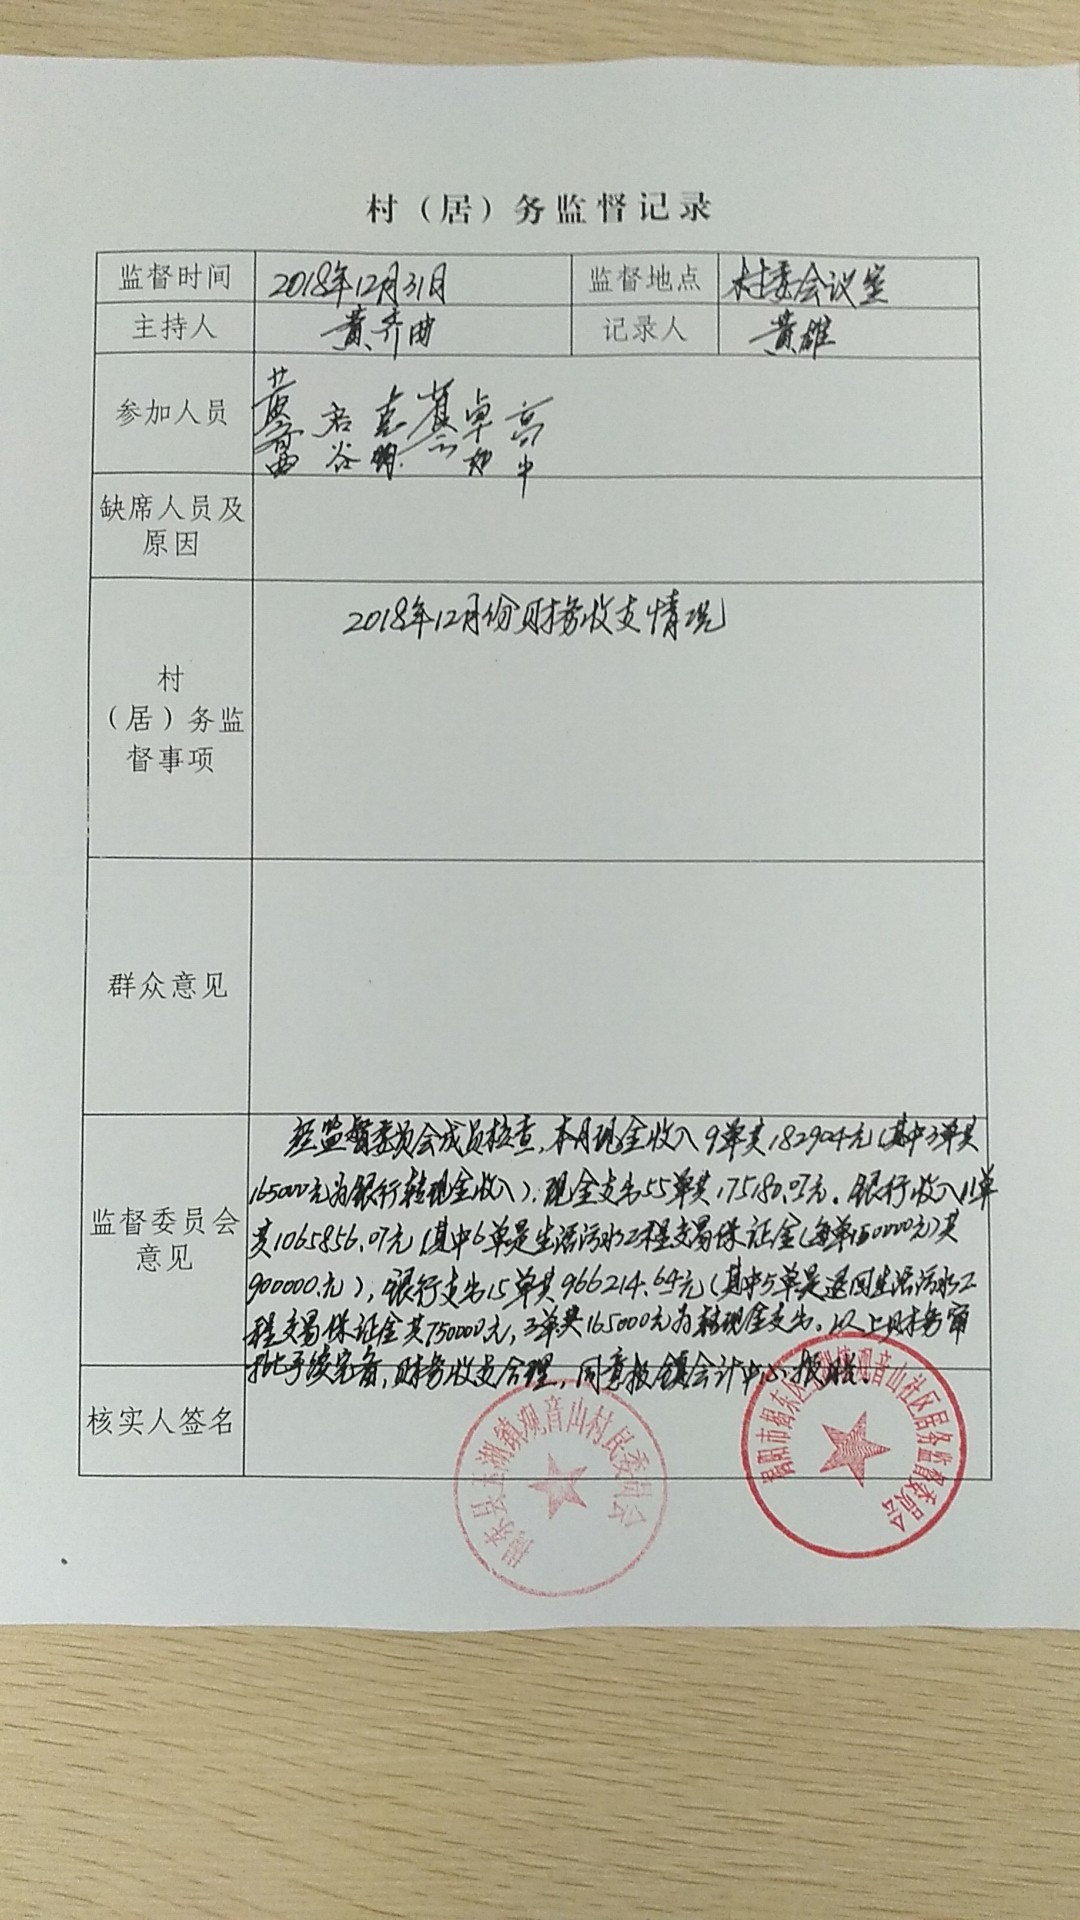 村（居）务监督记录
监督时间 2018年12月31日 监督地点 村委会议室
主持人 黄齐曲 记录人 黄雄
参加人员
缺席人员及
原因
2018年12月份财务收支情况
村
（居）务监
督事项
群众意见
经监督委员会成员核查，本月现金收入9单共182904元（其中3单共
165000元为银行转现金收入），现金支出55单共175180.07元．银行收入11单
共1065856.07元（其中6单是生活污水工程交易保证金（每单150000元）共
900000元），银行支出15单共966214.64元（其中5单是退回生活污水工
程交易保证金共750000元，3单共165000元为转现金支出。以上财务审
批手续完备，财务收支合理，同意报镇会计中心报账。
监督委员会
意见
核实人签名
揭东县玉湖镇观音山村民委员会
揭阳市揭东区玉湖镇观音山社区居务监督委员会